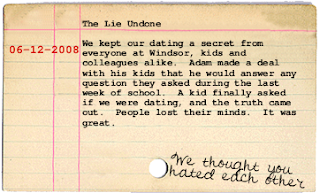 The Lie Undone
06-12-2008
We kept our dating a secret from
everyone at Windsor, kids and
colleagues alike. Adam made a deal
with his kids that he would answer any
question they asked during the last
week of school. A kid finally asked
if we were dating, and the truth came
out. People lost their minds. It was
great.
We thought you
hated each other